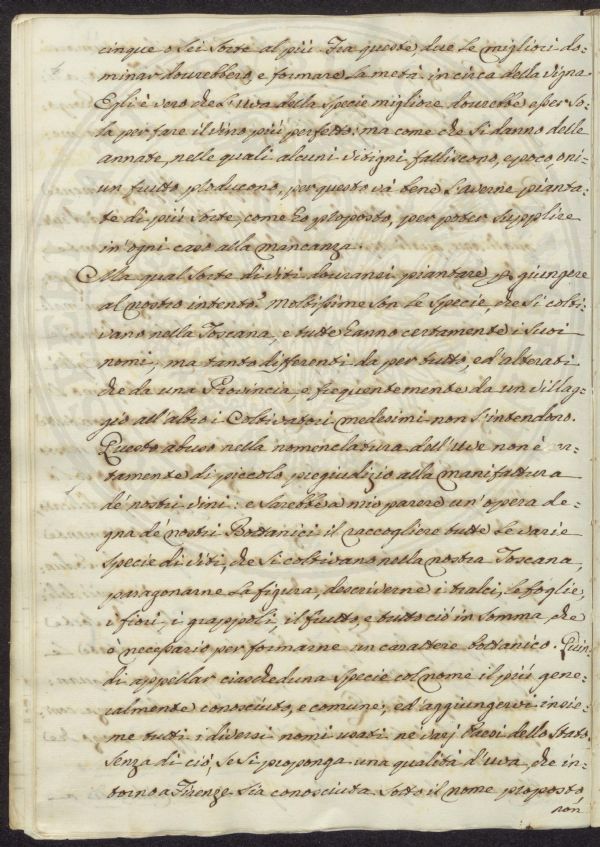 cinque o sei sorte al più. Fra queste due le migliori do=
minar dovrebbero, e formare la metà in circa della vigna.
Egli è vero che l'uva della specie migliore dovrebbe esser so=
la per fare il vino più perfetto: ma come che si danno delle
annate, nelle quali alcuni vitigni falliscono, e poco o ni=
un frutto producono, per questo và bene l'averne pianta=
te di più sorte, come ho proposto, per poter supplire
in ogni caso alla mancanza.
Ma qual sorte di viti dovransi piantare p giungere
al nostro intento? Moltissime son le specie, che si colti=
vano nella Toscana, e tutte hanno certamente i suoi
nomi; ma tanto differenti da per tutto, ed alterati
che da una Provincia, e frequentemente da un villag=
gio all'altro i Coltivatori medesimi non s'intendono.
Questo abuso nella nomenclatura dell'Uve non è cer=
tamente di piccolo pregiudizio alla manifattura
de' nostri vini: e sarebbe a mio parere un'opera de=
gna de' nostri Bottanici il raccogliere tutte le varie
specie di viti, che si coltivano nella nostra Toscana,
paragonarne la figura, descriverne i tralci, le foglie,
i fiori, i grappoli, il frutto, e tutto ciò in somma, che
è necessario per formarne un carattere bottanico. Quin=
di appellar ciascheduna specie col nome il più gene=
ralmente conosciuto, e comune; ed aggiungervi insie=
me tutti i diversi nomi usati ne' varj Paesi dello Stato.
Senza di ciò, se si proponga una qualità d'uva, che in=
torno a Firenze sia conosciuta sotto il nome proposto,
non